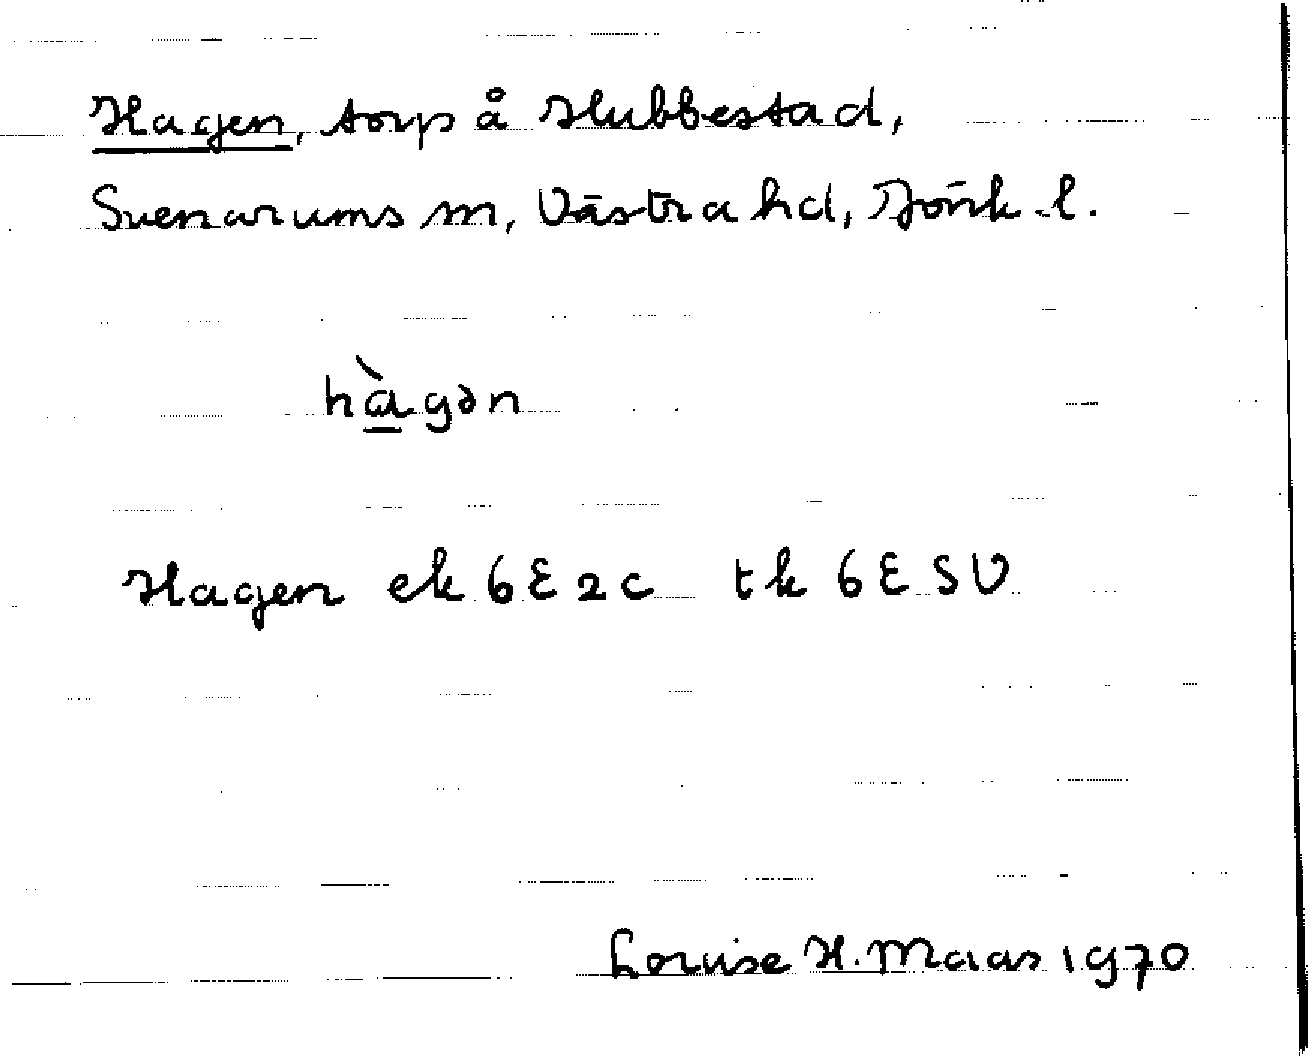 Hagen, torp å Hubbestad,
Svenarums sn, Västra hd, Jönk. l.
hàgən
Hagen ek 6E2c tk 6ESV
Louise H. Maas 1970